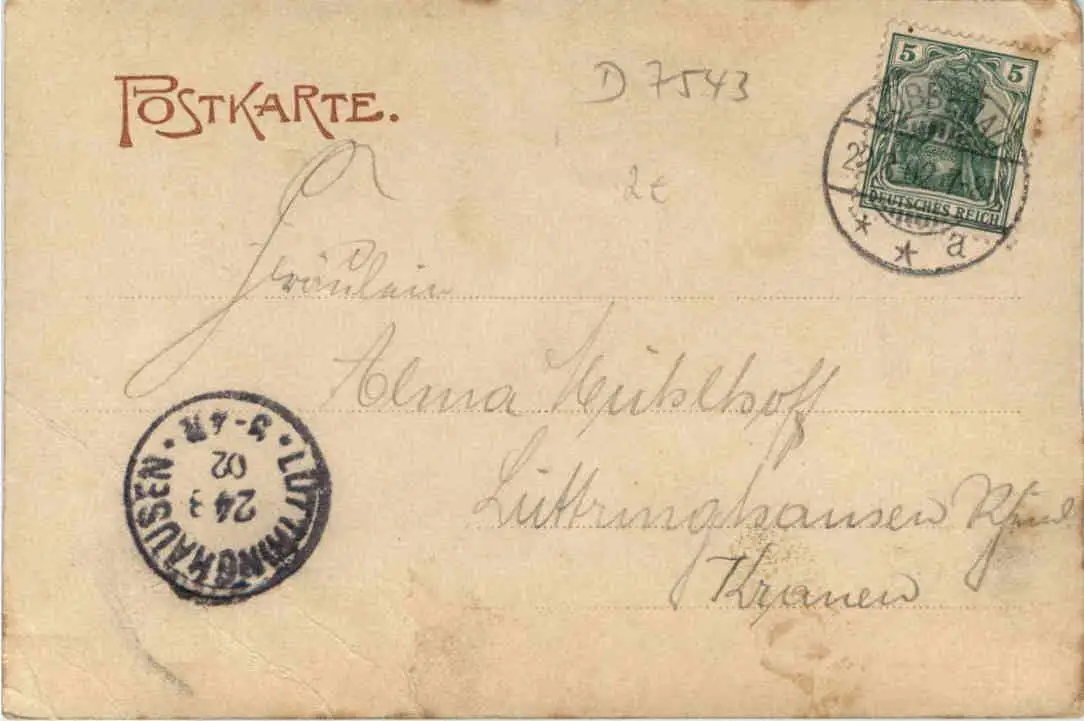 POSTKARTE.
D 7543
2€
5 5
DEUTSCHES REICH
* * a
Fräulein
Alma Mühlhoff
Lüttringhausen
Kranen
· LÜTTRINGHAUSEN ·
24 3
02
3-4N